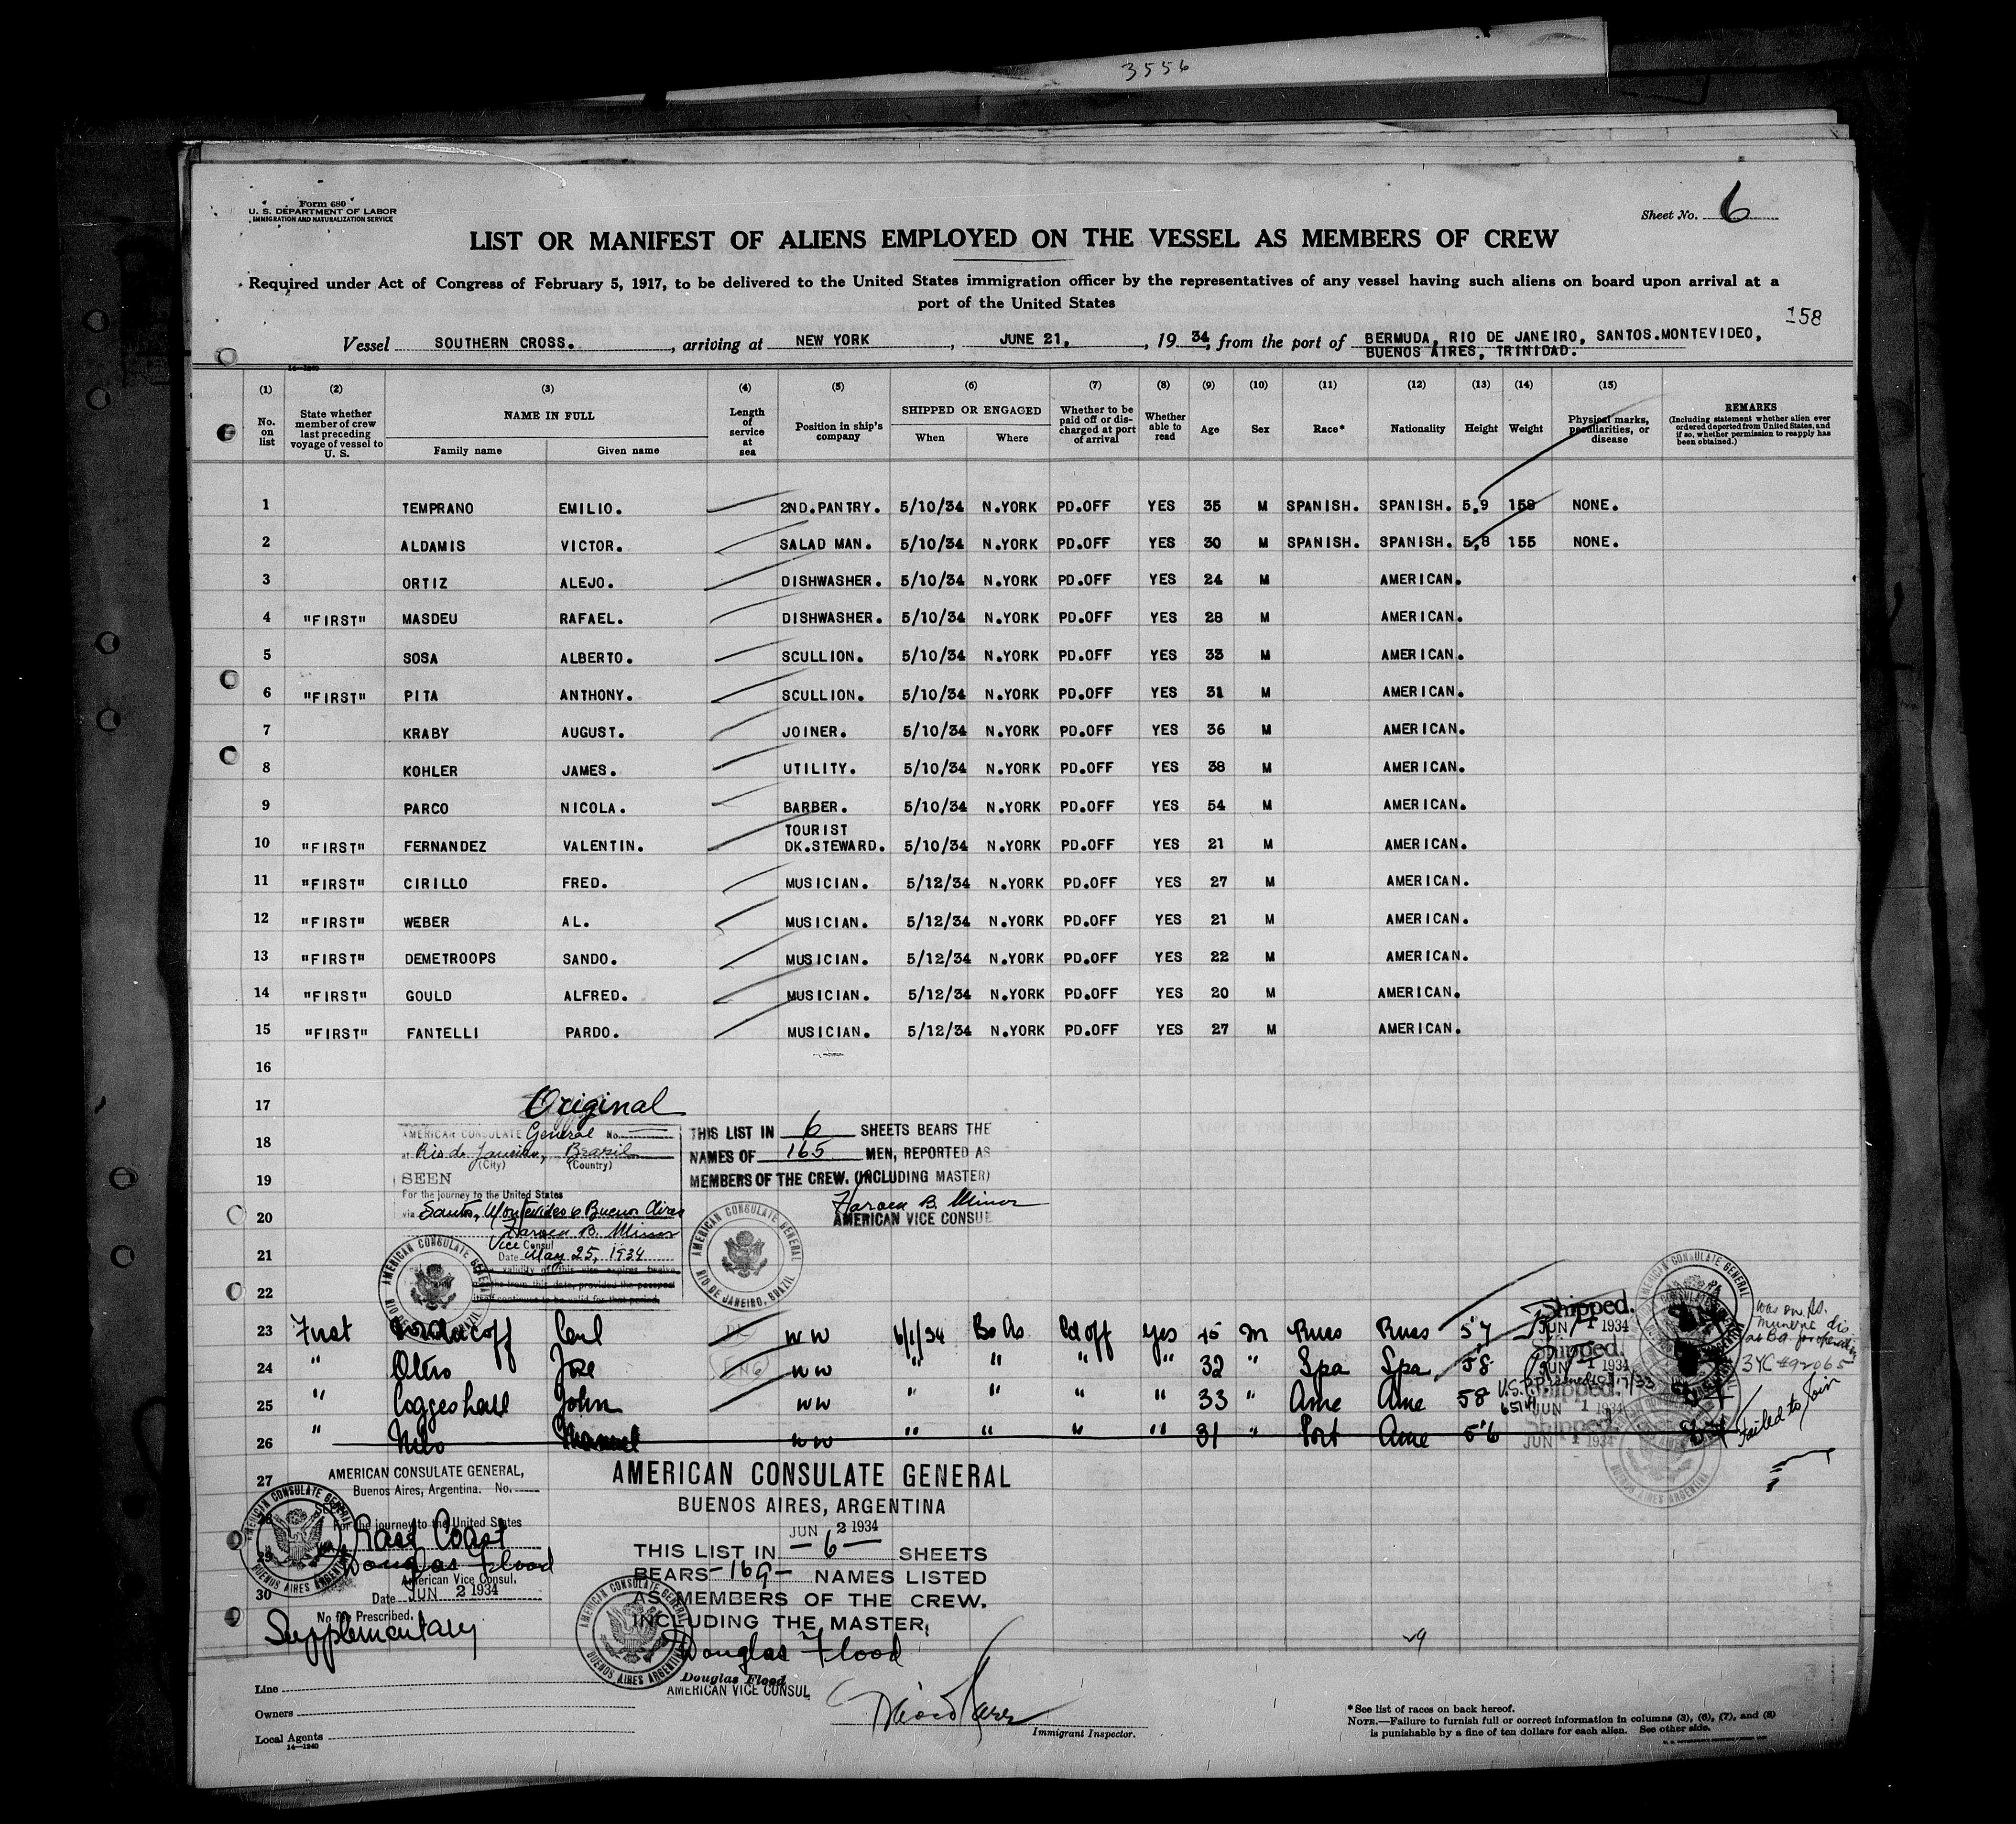 3556
Form 680
U. S. DEPARTMENT OF LABOR
IMMIGRATION AND NATURALIZATION SERVICE
Sheet No. 6
LIST OR MANIFEST OF ALIENS EMPLOYED ON THE VESSEL AS MEMBERS OF CREW
Required under Act of Congress of February 5, 1917, to be delivered to the United States immigration officer by the representatives of any vessel having such aliens on board upon arrival at a
port of the United States
158
Vessel SOUTHERN CROSS. , arriving at NEW YORK , JUNE 21, , 19 34, from the port of BERMUDA, RIO DE JANEIRO, SANTOS.MONTEVIDEO,
BUENOS AIRES, TRINIDAD.
14—1240
(1) (2) (3) (4) (5) (6) (7) (8) (9) (10) (11) (12) (13) (14) (15)
No. on list
State whether member of crew last preceding voyage of vessel to U. S.
NAME IN FULL
Family name Given name
Length of service at sea
Position in ship's company
SHIPPED OR ENGAGED
When Where
Whether to be paid off or discharged at port of arrival
Whether able to read
Age Sex Race* Nationality Height Weight
Physical marks, peculiarities, or disease
REMARKS
(Including statement whether alien ever ordered deported from United States, and if so, whether permission to reapply has been obtained.)
1 TEMPRANO EMILIO. 2ND.PANTRY. 5/10/34 N.YORK PD.OFF YES 35 M SPANISH. SPANISH. 5,9 158 NONE.
2 ALDAMIS VICTOR. SALAD MAN. 5/10/34 N.YORK PD.OFF YES 30 M SPANISH. SPANISH. 5,8 155 NONE.
3 ORTIZ ALEJO. DISHWASHER. 5/10/34 N.YORK PD.OFF YES 24 M AMERICAN.
4 "FIRST" MASDEU RAFAEL. DISHWASHER. 5/10/34 N.YORK PD.OFF YES 28 M AMERICAN.
5 SOSA ALBERTO. SCULLION. 5/10/34 N.YORK PD.OFF YES 33 M AMERICAN.
6 "FIRST" PITA ANTHONY. SCULLION. 5/10/34 N.YORK PD.OFF YES 31 M AMERICAN.
7 KRABY AUGUST. JOINER. 5/10/34 N.YORK PD.OFF YES 36 M AMERICAN.
8 KOHLER JAMES. UTILITY. 5/10/34 N.YORK PD.OFF YES 38 M AMERICAN.
9 PARCO NICOLA. BARBER. 5/10/34 N.YORK PD.OFF YES 54 M AMERICAN.
TOURIST
10 "FIRST" FERNANDEZ VALENTIN. DK.STEWARD. 5/10/34 N.YORK PD.OFF YES 21 M AMERICAN.
11 "FIRST" CIRILLO FRED. MUSICIAN. 5/12/34 N.YORK PD.OFF YES 27 M AMERICAN.
12 "FIRST" WEBER AL. MUSICIAN. 5/12/34 N.YORK PD.OFF YES 21 M AMERICAN.
13 "FIRST" DEMETROOPS SANDO. MUSICIAN. 5/12/34 N.YORK PD.OFF YES 22 M AMERICAN.
14 "FIRST" GOULD ALFRED. MUSICIAN. 5/12/34 N.YORK PD.OFF YES 20 M AMERICAN.
15 "FIRST" FANTELLI PARDO. MUSICIAN. 5/12/34 N.YORK PD.OFF YES 27 M AMERICAN.
16
17
Original
18
AMERICAN CONSULATE General No.
at Rio de Janeiro, Brazil
(City) (Country)
19
SEEN
For the journey to the United States
20
via Santos, Montevideo & Buenos Aires
Vice Consul
21
Date May 25, 1934
22
THIS LIST IN 6 SHEETS BEARS THE
NAMES OF 165 MEN, REPORTED AS
MEMBERS OF THE CREW. (INCLUDING MASTER)
AMERICAN VICE CONSUL
AMERICAN CONSULATE GENERAL
RIO DE JANEIRO, BRAZIL
23 First Carl WW 6/1/34 Bs As Pd off Yes 45 M Russ Russ 5'7 Shipped. JUN 1 1934
24 " Otero Jose WW " " " " 32 " Spa Spa 58 Shipped. JUN 1 1934
25 " Coggeshall John WW " " " " 33 " Ame Ame 58 Shipped. JUN 1 1934
26 " Manuel WW " " " " 31 " Port Ame 5'6 Shipped. JUN 1 1934 Failed to Join
27
AMERICAN CONSULATE GENERAL,
Buenos Aires, Argentina. No.
For the journey to the United States
East Coast
Douglas Flood
American Vice Consul.
30
Date JUN 2 1934
No fee Prescribed.
Supplementary
AMERICAN CONSULATE GENERAL
BUENOS AIRES, ARGENTINA
JUN 2 1934
THIS LIST IN -6- SHEETS
BEARS -169- NAMES LISTED
AS MEMBERS OF THE CREW.
INCLUDING THE MASTER,
Douglas Flood
Douglas Flood
AMERICAN VICE CONSUL
AMERICAN CONSULATE GENERAL
BUENOS AIRES ARGENTINA
Line
Owners
Local Agents
14—1240
Immigrant Inspector.
*See list of races on back hereof.
NOTE.—Failure to furnish full or correct information in columns (3), (6), (7), and (8)
is punishable by a fine of ten dollars for each alien. See other side.